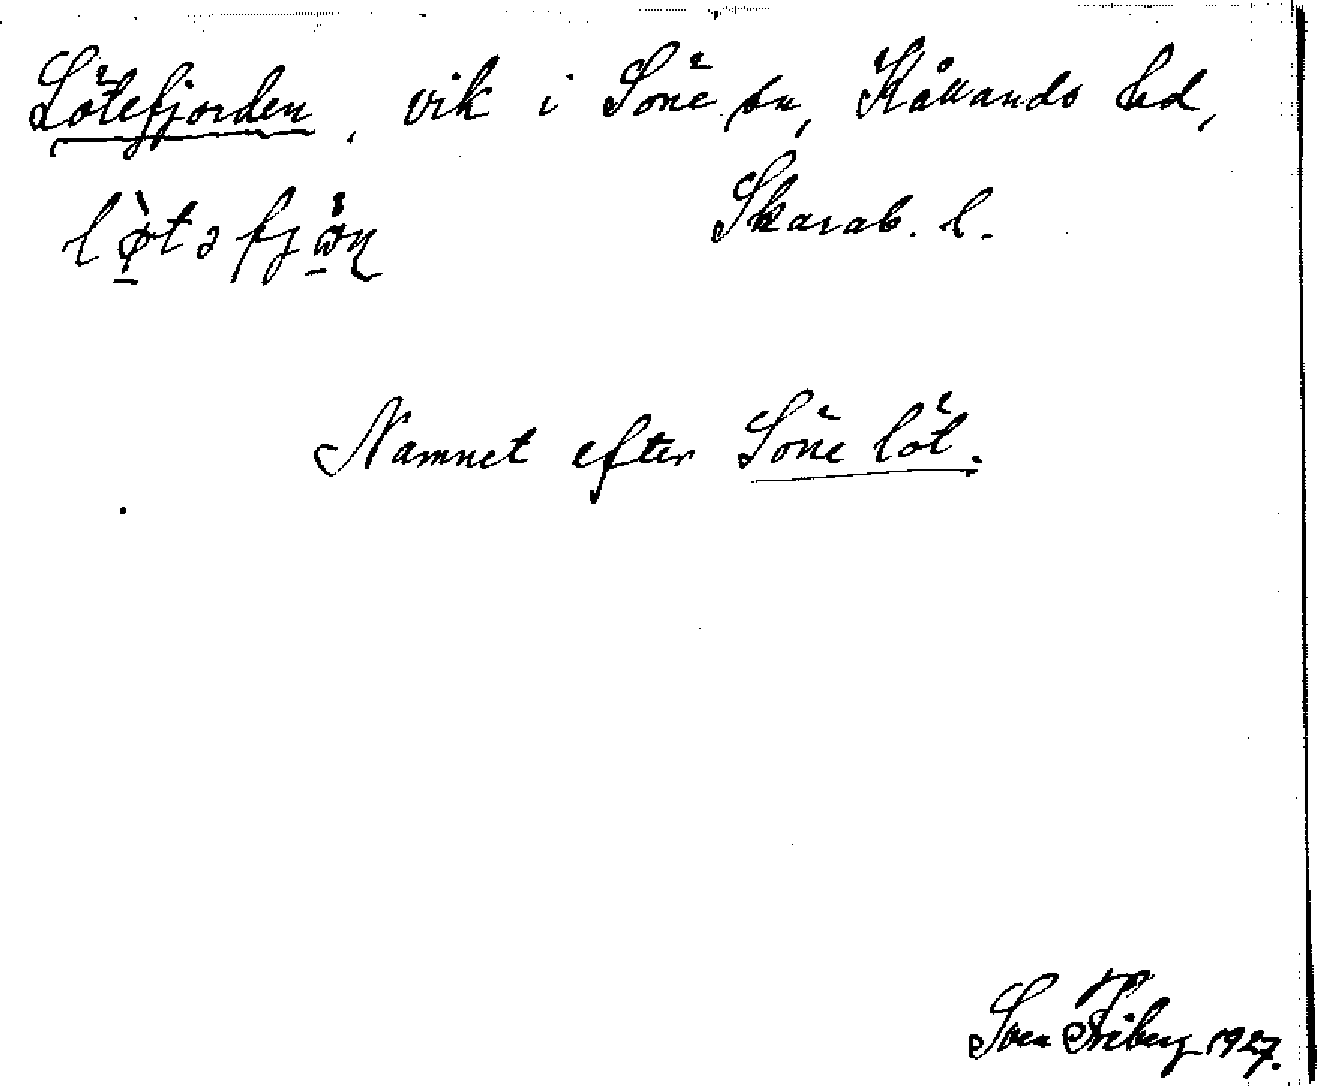 Lötefjorden, vik i Söne sn, Kållands hd,
lø̀təfjɷ̀ɳ Skarab. l.
Namnet efter Söne löt.
Sven Friberg 1927.